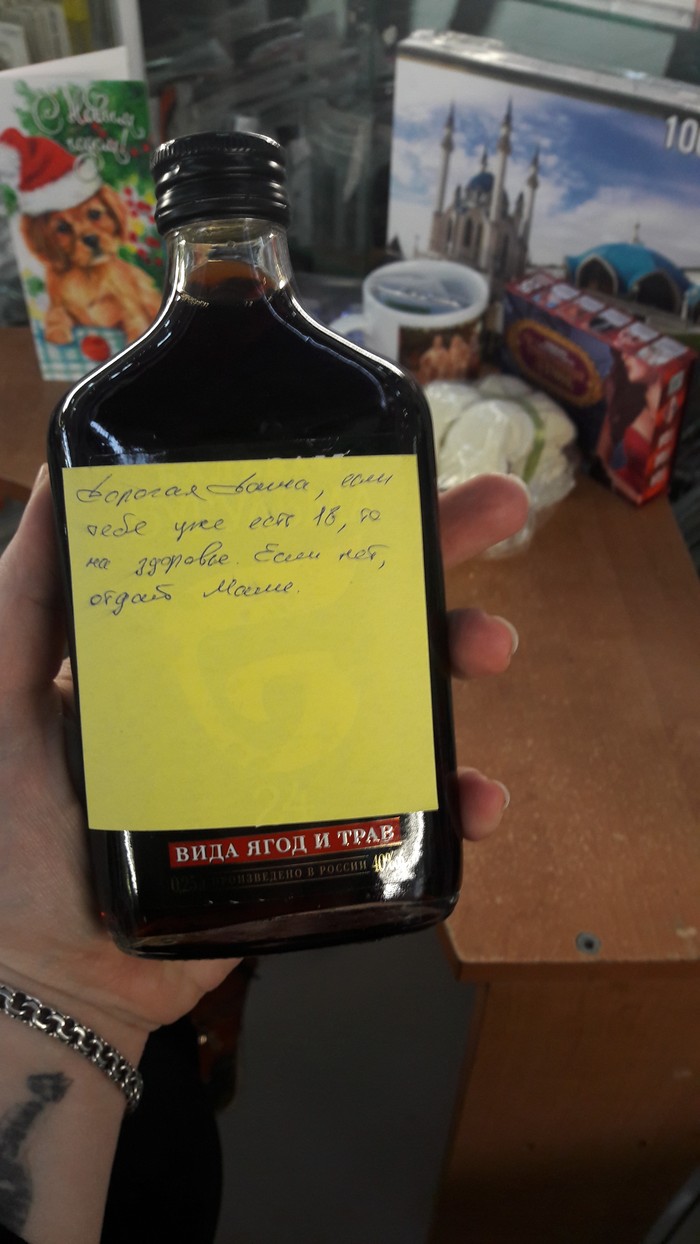 С Новым
годом!
100
Дорогая Даша, если
тебе уже есть 18, то
на здоровье. Если нет,
отдай Маме.
24
ВИДА ЯГОД И ТРАВ
0,25л ПРОИЗВЕДЕНО В РОССИИ 40%